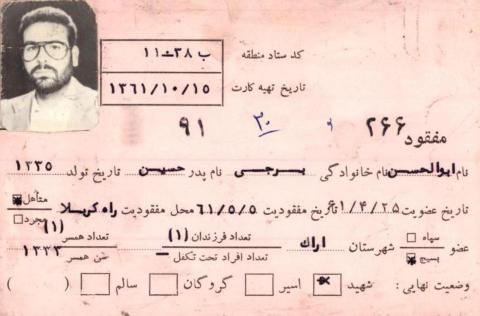 کد ستاد منطقه ب ۳۸-۱۱
تاریخ تهیه کارت ۱۳۶۱/۱۰/۱۵
مفقود ۲۶۶ ۹ ۳۰ ۹۱
نام ابوالحسن نام خانوادگی برجی نام پدر حسین تاریخ تولد ۱۳۳۵
تاریخ عضویت ۶۱/۴/۲۵ تاریخ مفقودیت ۶۱/۵/۵ محل مفقودیت راه کربلا متأهل مجرد
عضو سپاه بسیج شهرستان اراك تعداد فرزندان (۱) تعداد افراد تحت تکفل - تعداد همسر (۱) سن همسر ۱۳۳۳
وضعیت نهایی: شهید اسیر گروگان سالم ( )